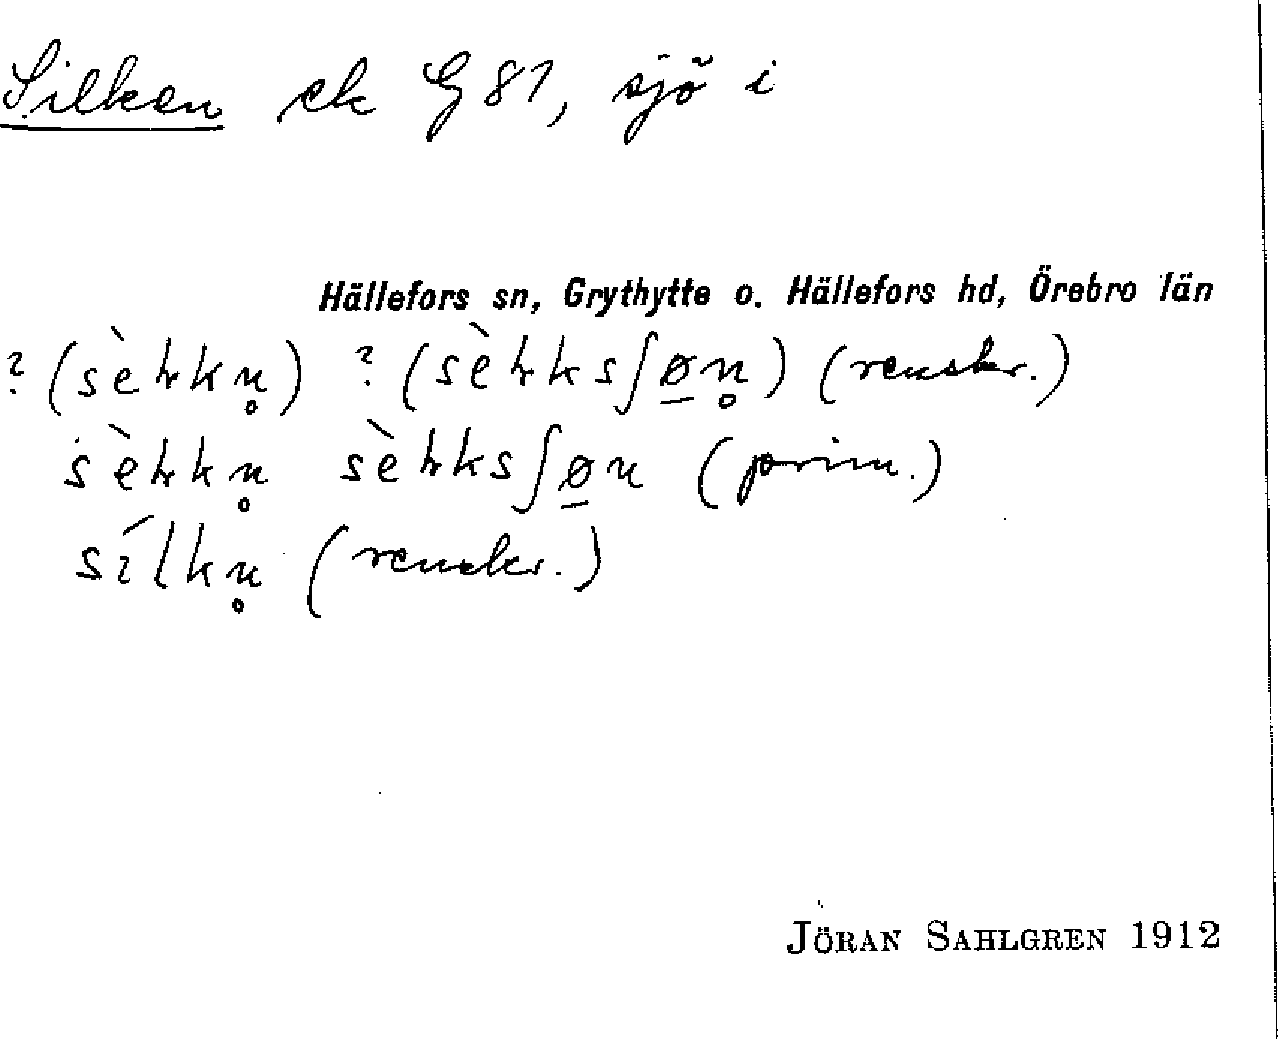 Silken ek G 81, sjö i
Hällefors sn, Grythytte o. Hällefors hd, Örebro län
? (sèƚkn̥) ? (sèƚksʃø̱n̥) (renskr.)
sèƚkn̥ sèƚksʃø̱n (prim.)
sílkn̥ (renskr.)
JÖRAN SAHLGREN 1912